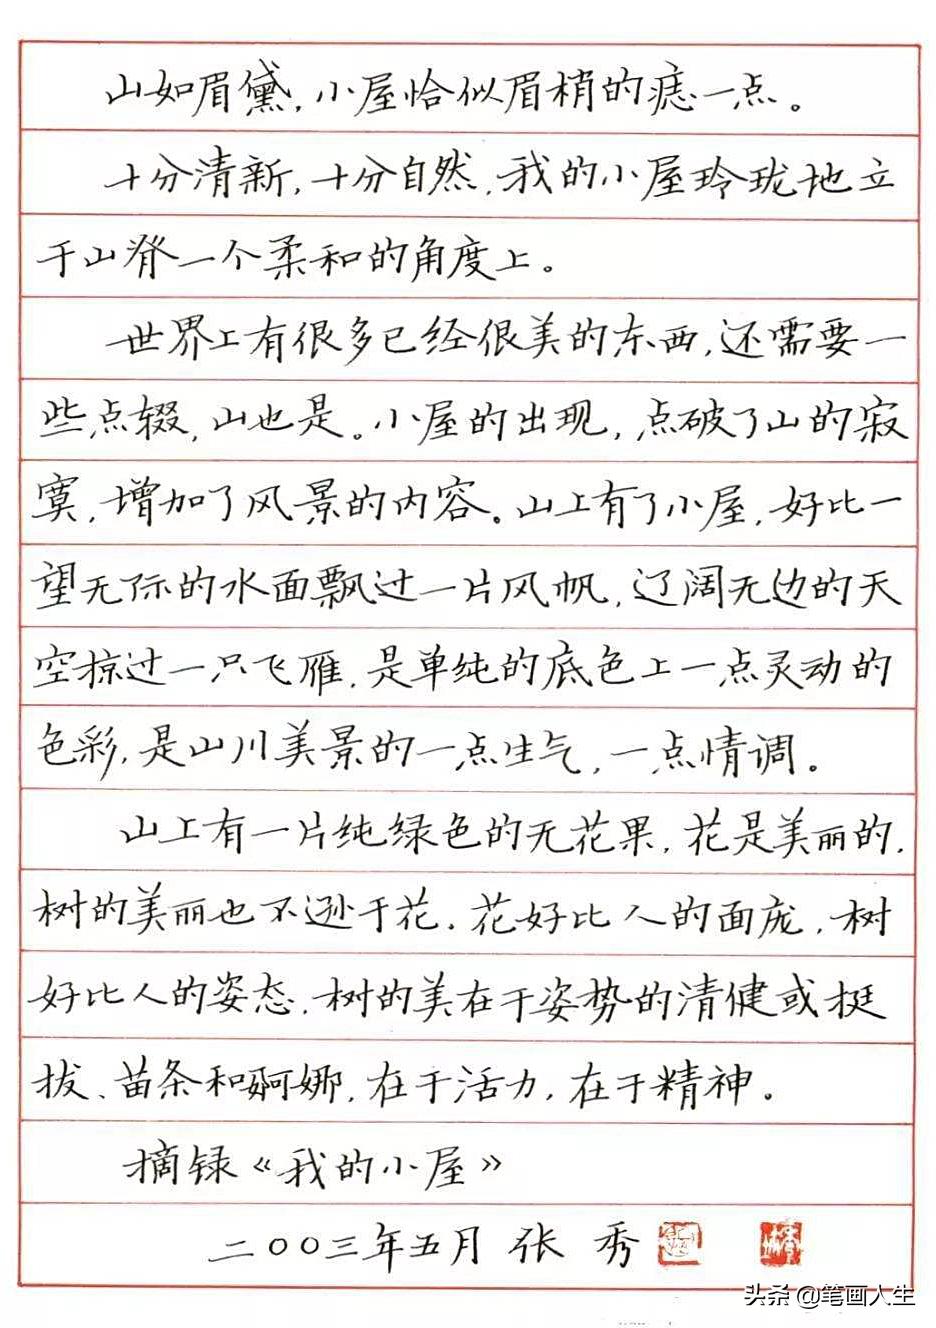 山如眉黛,小屋恰似眉梢的痣一点。
十分清新,十分自然,我的小屋玲珑地立
于山脊一个柔和的角度上。
世界上有很多已经很美的东西,还需要一
些点缀,山也是。小屋的出现,点破了山的寂
寞,增加了风景的内容。山上有了小屋,好比一
望无际的水面飘过一片风帆,辽阔无边的天
空掠过一只飞雁,是单纯的底色上一点灵动的
色彩,是山川美景的一点生气,一点情调。
山上有一片纯绿色的无花果,花是美丽的,
树的美丽也不逊于花。花好比人的面庞,树
好比人的姿态。树的美在于姿势的清健或挺
拔、苗条和婀娜,在于活力,在于精神。
摘録《我的小屋》
二〇〇三年五月 张 秀
头条 @笔画人生